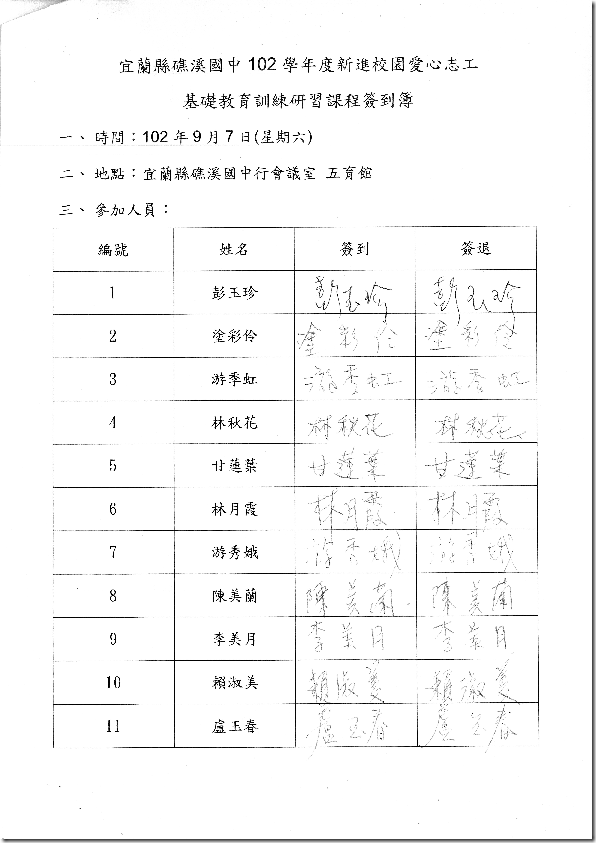 宜蘭縣礁溪國中 102 學年度新進校園愛心志工
基礎教育訓練研習課程簽到簿
一、時間：102 年 9 月 7 日(星期六)
二、地點：宜蘭縣礁溪國中行會議室 五育館
三、參加人員：
編號 姓名 簽到 簽退
1 彭玉珍 彭玉珍 彭玉珍
2 塗彩伶 塗彩伶 塗彩伶
3 游季虹 游季虹 游季虹
4 林秋花 林秋花 林秋花
5 甘蓮葉 甘蓮葉 甘蓮葉
6 林月霞 林月霞 林月霞
7 游秀娥 游秀娥 游秀娥
8 陳美蘭 陳美蘭 陳美蘭
9 李美月 李美月 李美月
10 賴淑美 賴淑美 賴淑美
11 盧玉春 盧玉春 盧玉春